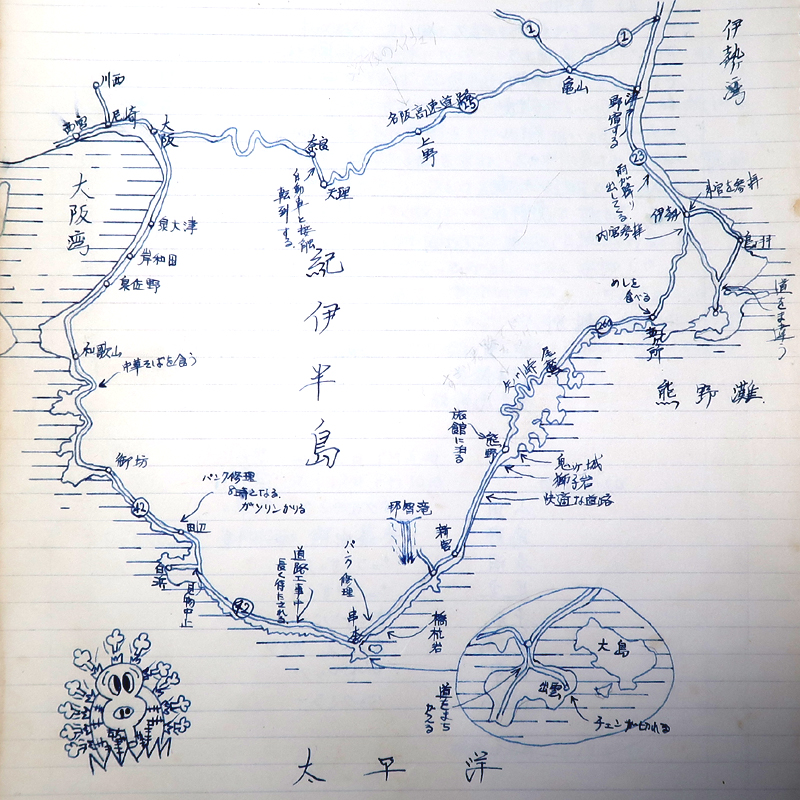 伊勢湾
2
2
亀山
川西
西宮
尼崎
大阪
名阪高速道路
25
上野
津
野宿する
23
奈良
天理
自動車と接触
転倒する
雨が降り
出してくる
伊勢
外宮を参拝
内宮参拝
鳥羽
道をまちがう
めしを
食べる
260
大阪湾
泉大津
岸和田
泉佐野
紀伊半島
和歌山
中華そばを食う
尾鷲
矢ノ川峠
熊野灘
旅館に泊る
熊野
鬼ヶ城
獅子岩
快適な道路
御坊
42
パンク修理
8時となる
ガソリンかりる
田辺
白浜
見物中止
42
道路工事中
長く待たされる
パンク修理
那智滝
新宮
串本
橋杭岩
大島
出雲
道をまち
がえる
チェーンが切れる
太平洋